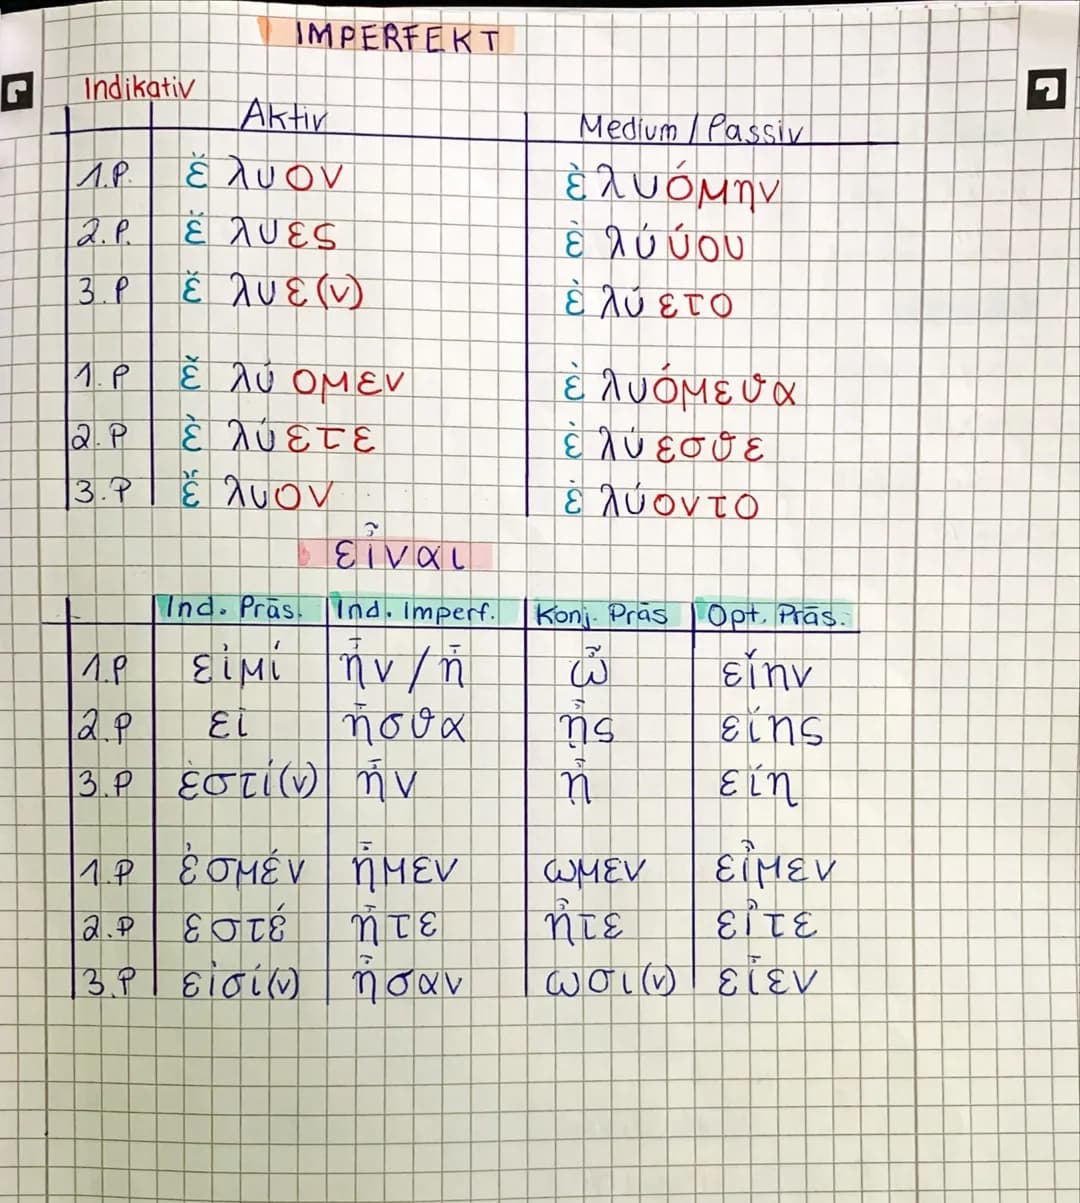 IMPERFEKT
Indikativ
Aktiv Medium / Passiv
1.P. ἔ λυον ἐ λυόμην
2.P. ἔ λυες ἐ λύύου
3.P ἔ λυε(ν) ἐ λύ ετο
1.P ἔ λύ ομεν ἐ λυόμεθα
2.P ἐ λύετε ἐ λύ εσθε
3.P ἔ λυον ἐ λύοντο
εἶναι
Ind. Präs. Ind. Imperf. Konj. Präs Opt. Präs.
1.P εἰμί ἦν / ἦ ὦ εἴην
2.P εἶ ἦσθα ᾖς είης
3.P ἐστί(ν) ἦν ᾖ είη
1.P ἐσμέν ἦμεν ωμεν εἶμεν
2.P εστέ ἦτε ἦτε εἶτε
3.P εἰσί(ν) ἦσαν ωσι(ν) εἶεν